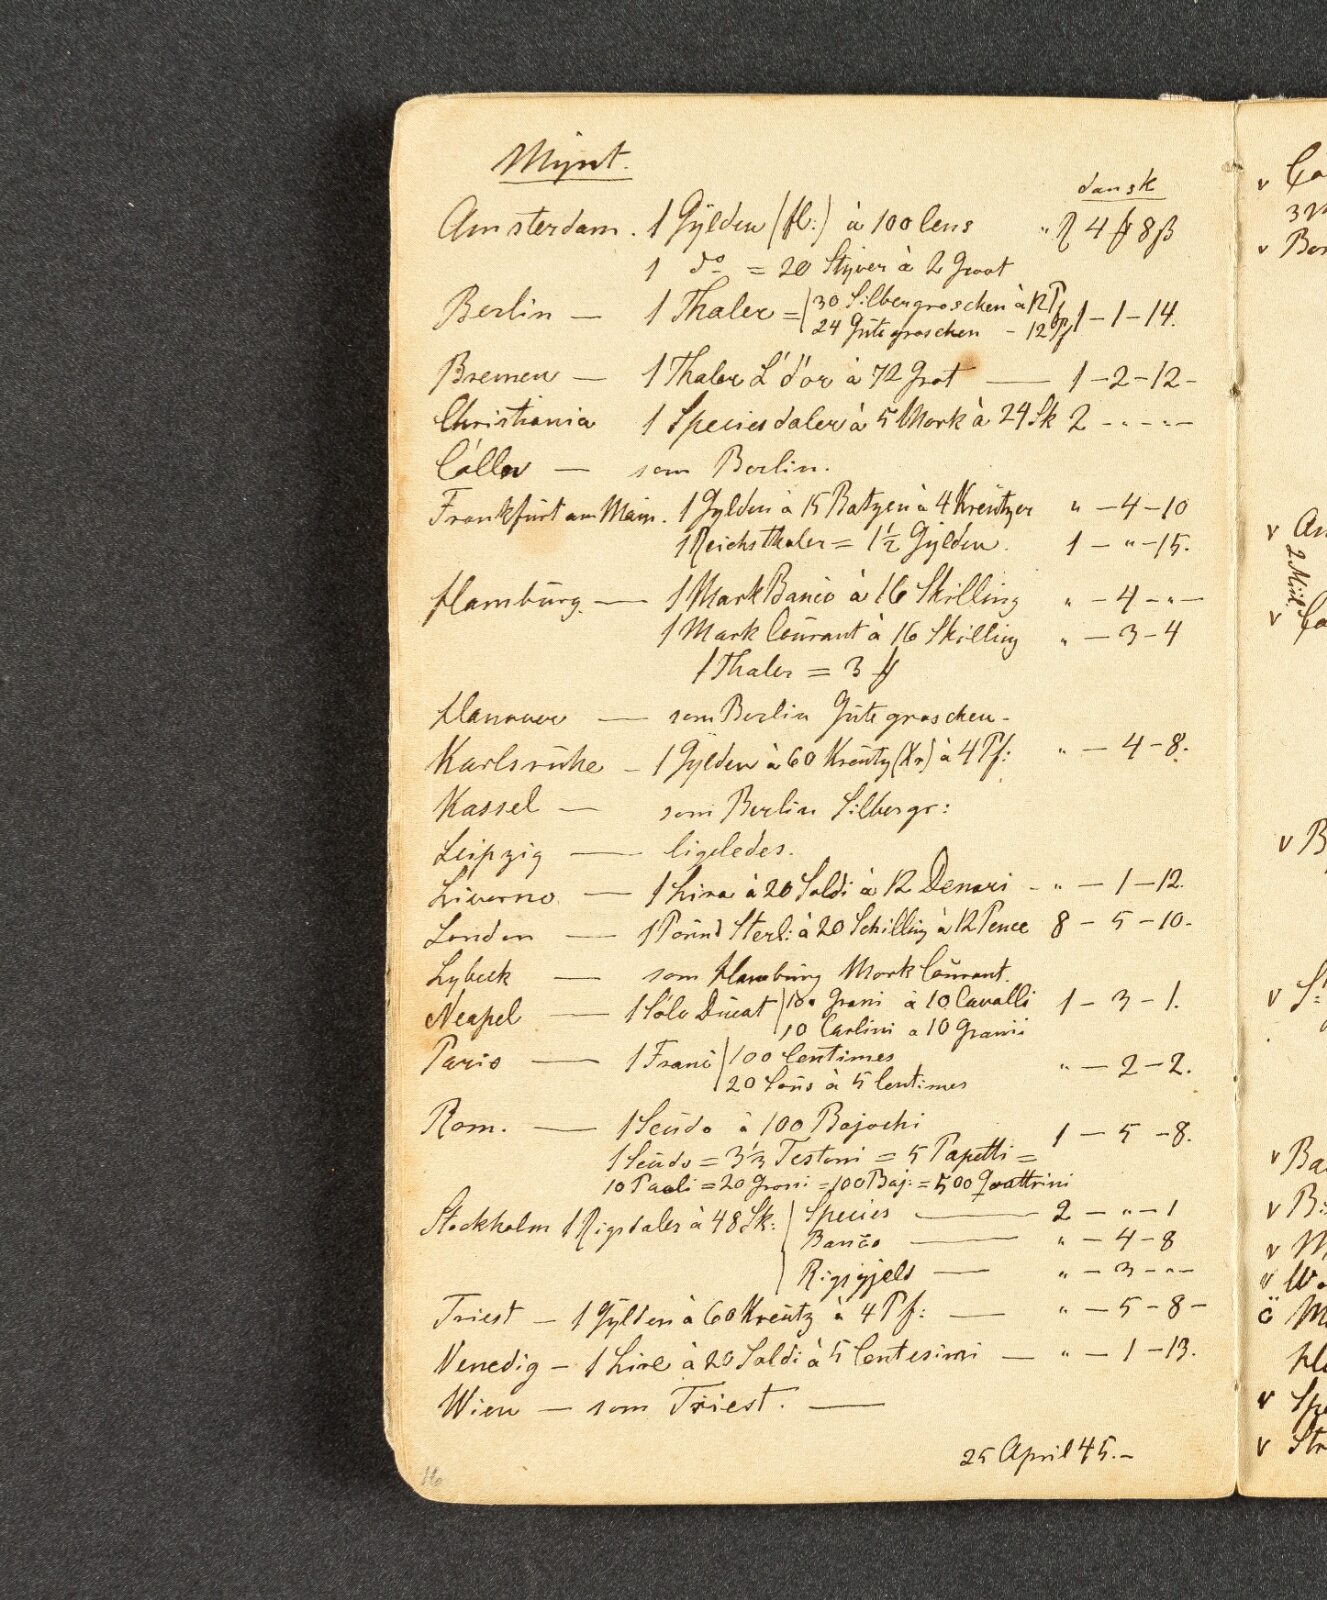 Mynt.
dansk
Amsterdam. 1 Gylden (fl:) à 100 Cens " 4 8 ß
1 do = 20 Styver à 2 Groot
Berlin — 1 Thaler = 30 Silbergroschen à 12 Pf 1-1-14.
24 Gütegroschen - 12 Pf
Bremen — 1 Thaler L d'or à 72 Grot — 1-2-12-
Christiania 1 Speciesdaler à 5 Mark à 24 Sk 2 - " - " -
Cölln — som Berlin.
Frankfurt am Main. 1 Gylden à 15 Batzen à 4 Kreützer " -4-10
1 Reichsthaler = 1½ Gylden. 1 - " -15.
Hambürg — 1 Mark Banco à 16 Skilling " -4- " -
1 Mark Coürant à 16 Skilling " -3-4
1 Thaler = 3
Hannover — som Berlin Gütegroschen-
Karlsrühe - 1 Gylden à 60 Kreütz (Xr) à 4 Pf: " -4-8.
Kassel — som Berlin Silbergr:
Leipzig — ligeledes.
Livorno — 1 Lira à 20 Soldi à 12 Denari - " -1-12.
London — 1 Pound Sterl: à 20 Schilling à 12 Pence 8-5-10.
Lybeck — som Hambürg Mark Coürant.
Neapel — 1 Sölv Dücat 100 Grani à 10 Cavalli 1-3-1.
10 Carlini a 10 Granii
Paris — 1 Franc 100 Centimes " -2-2.
20 Soüs à 5 Centimes
Rom. — 1 Scüdo à 100 Bajochi 1-5-8.
1 Scüdo = 3⅓ Testoni = 5 Papetti =
10 Paoli = 20 Grossi = 100 Baj: = 500 Quattrini
Stockholm 1 Rigsdaler à 48 Sk: Species — 2 - " -1
Banco — " -4-8
Rigsgjeld — " -3- " -
Triest — 1 Gylden à 60 Kreütz à 4 Pf: — " -5-8-
Venedig — 1 Lire à 20 Soldi à 5 Centesimi — " -1-13.
Wien — som Triest. —
25 April 45.-
16